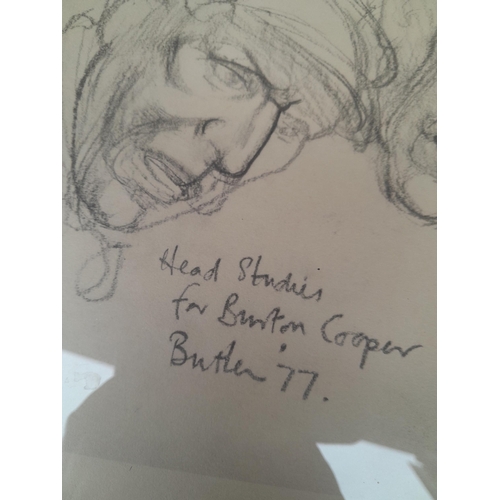 Head Studies
for Burton Cooper
Butler '77.